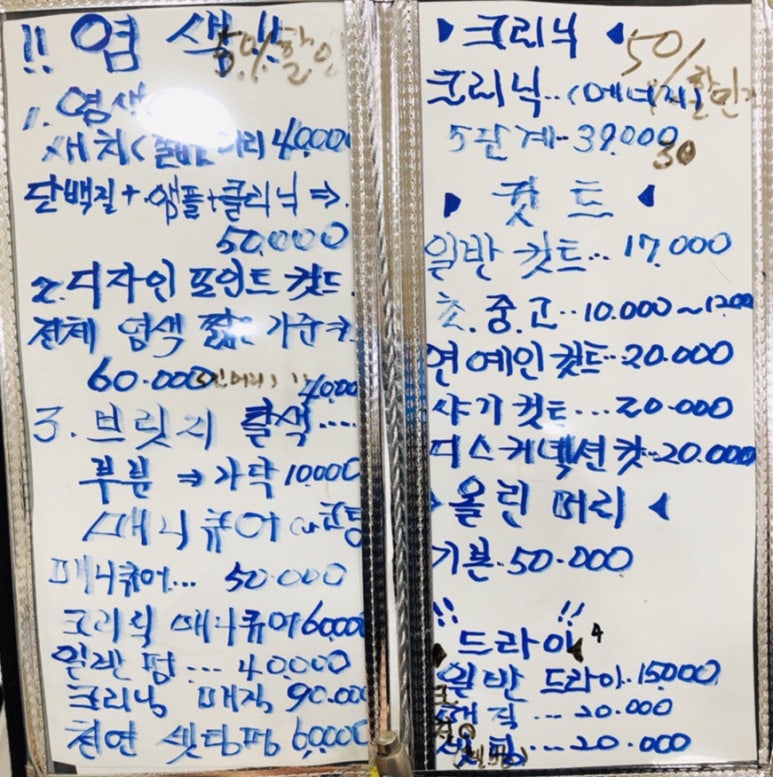 !! 염색!!
50%할인
1. 염색
새치( 머리 40,000
단백질+앰플+클리닉⇒.
50.000
2.디자인 포인트 컷트.
전체 염색 짧은 기준
60.000 40,000
3. 브릿지 탈색....
부분 ⇒ 가닥 10.000
매니큐어
매니큐어... 50.000
크리닉 매니큐어 60,000
일반 펌... 40.000
크리닝 매직 90.000
천연 셋팅펌
▶ 크리닉 ◀
50%할인
크리닉..(에너지)
5단계-39.000
30
▶ 컷트 ◀
일반 컷트... 17.000
초.중.고..10.000~12000
연예인 컷트..20.000
샤기 컷트...20.000
디스커넥션 컷..20.000
올린 머리 ◀
기본.50.000
!! !!
드라이
일반 드라이..15.000
매직 ... 20.000
셋팅...20.000